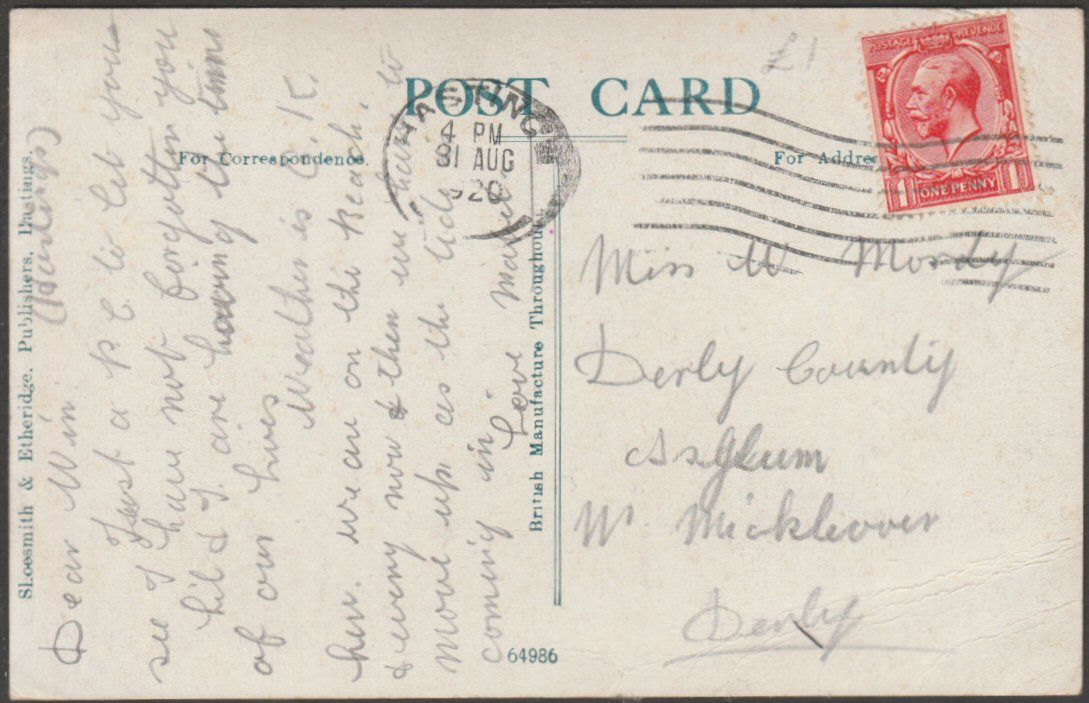 POST CARD
For Correspondence.
For Addre
POSTAGE REVENUE
1 ONE PENNY 1
HASTING
4 PM
31 AUG
920
(Hastings)
Dear Win.
Just a p. c to let you
see I have not forgotten you
Hild & I are having the time
of our lives
Weather is O.K.
here. we are on the Beach,
& every now & then we have to
move up as the tide is
coming in.
Love
Miss W Mosdy
Derby County
Asylum
Nr. Mickleover
Derby
Sloesmith & Etheridge, Publishers, Hastings.
British Manufacture Throughout.
64986